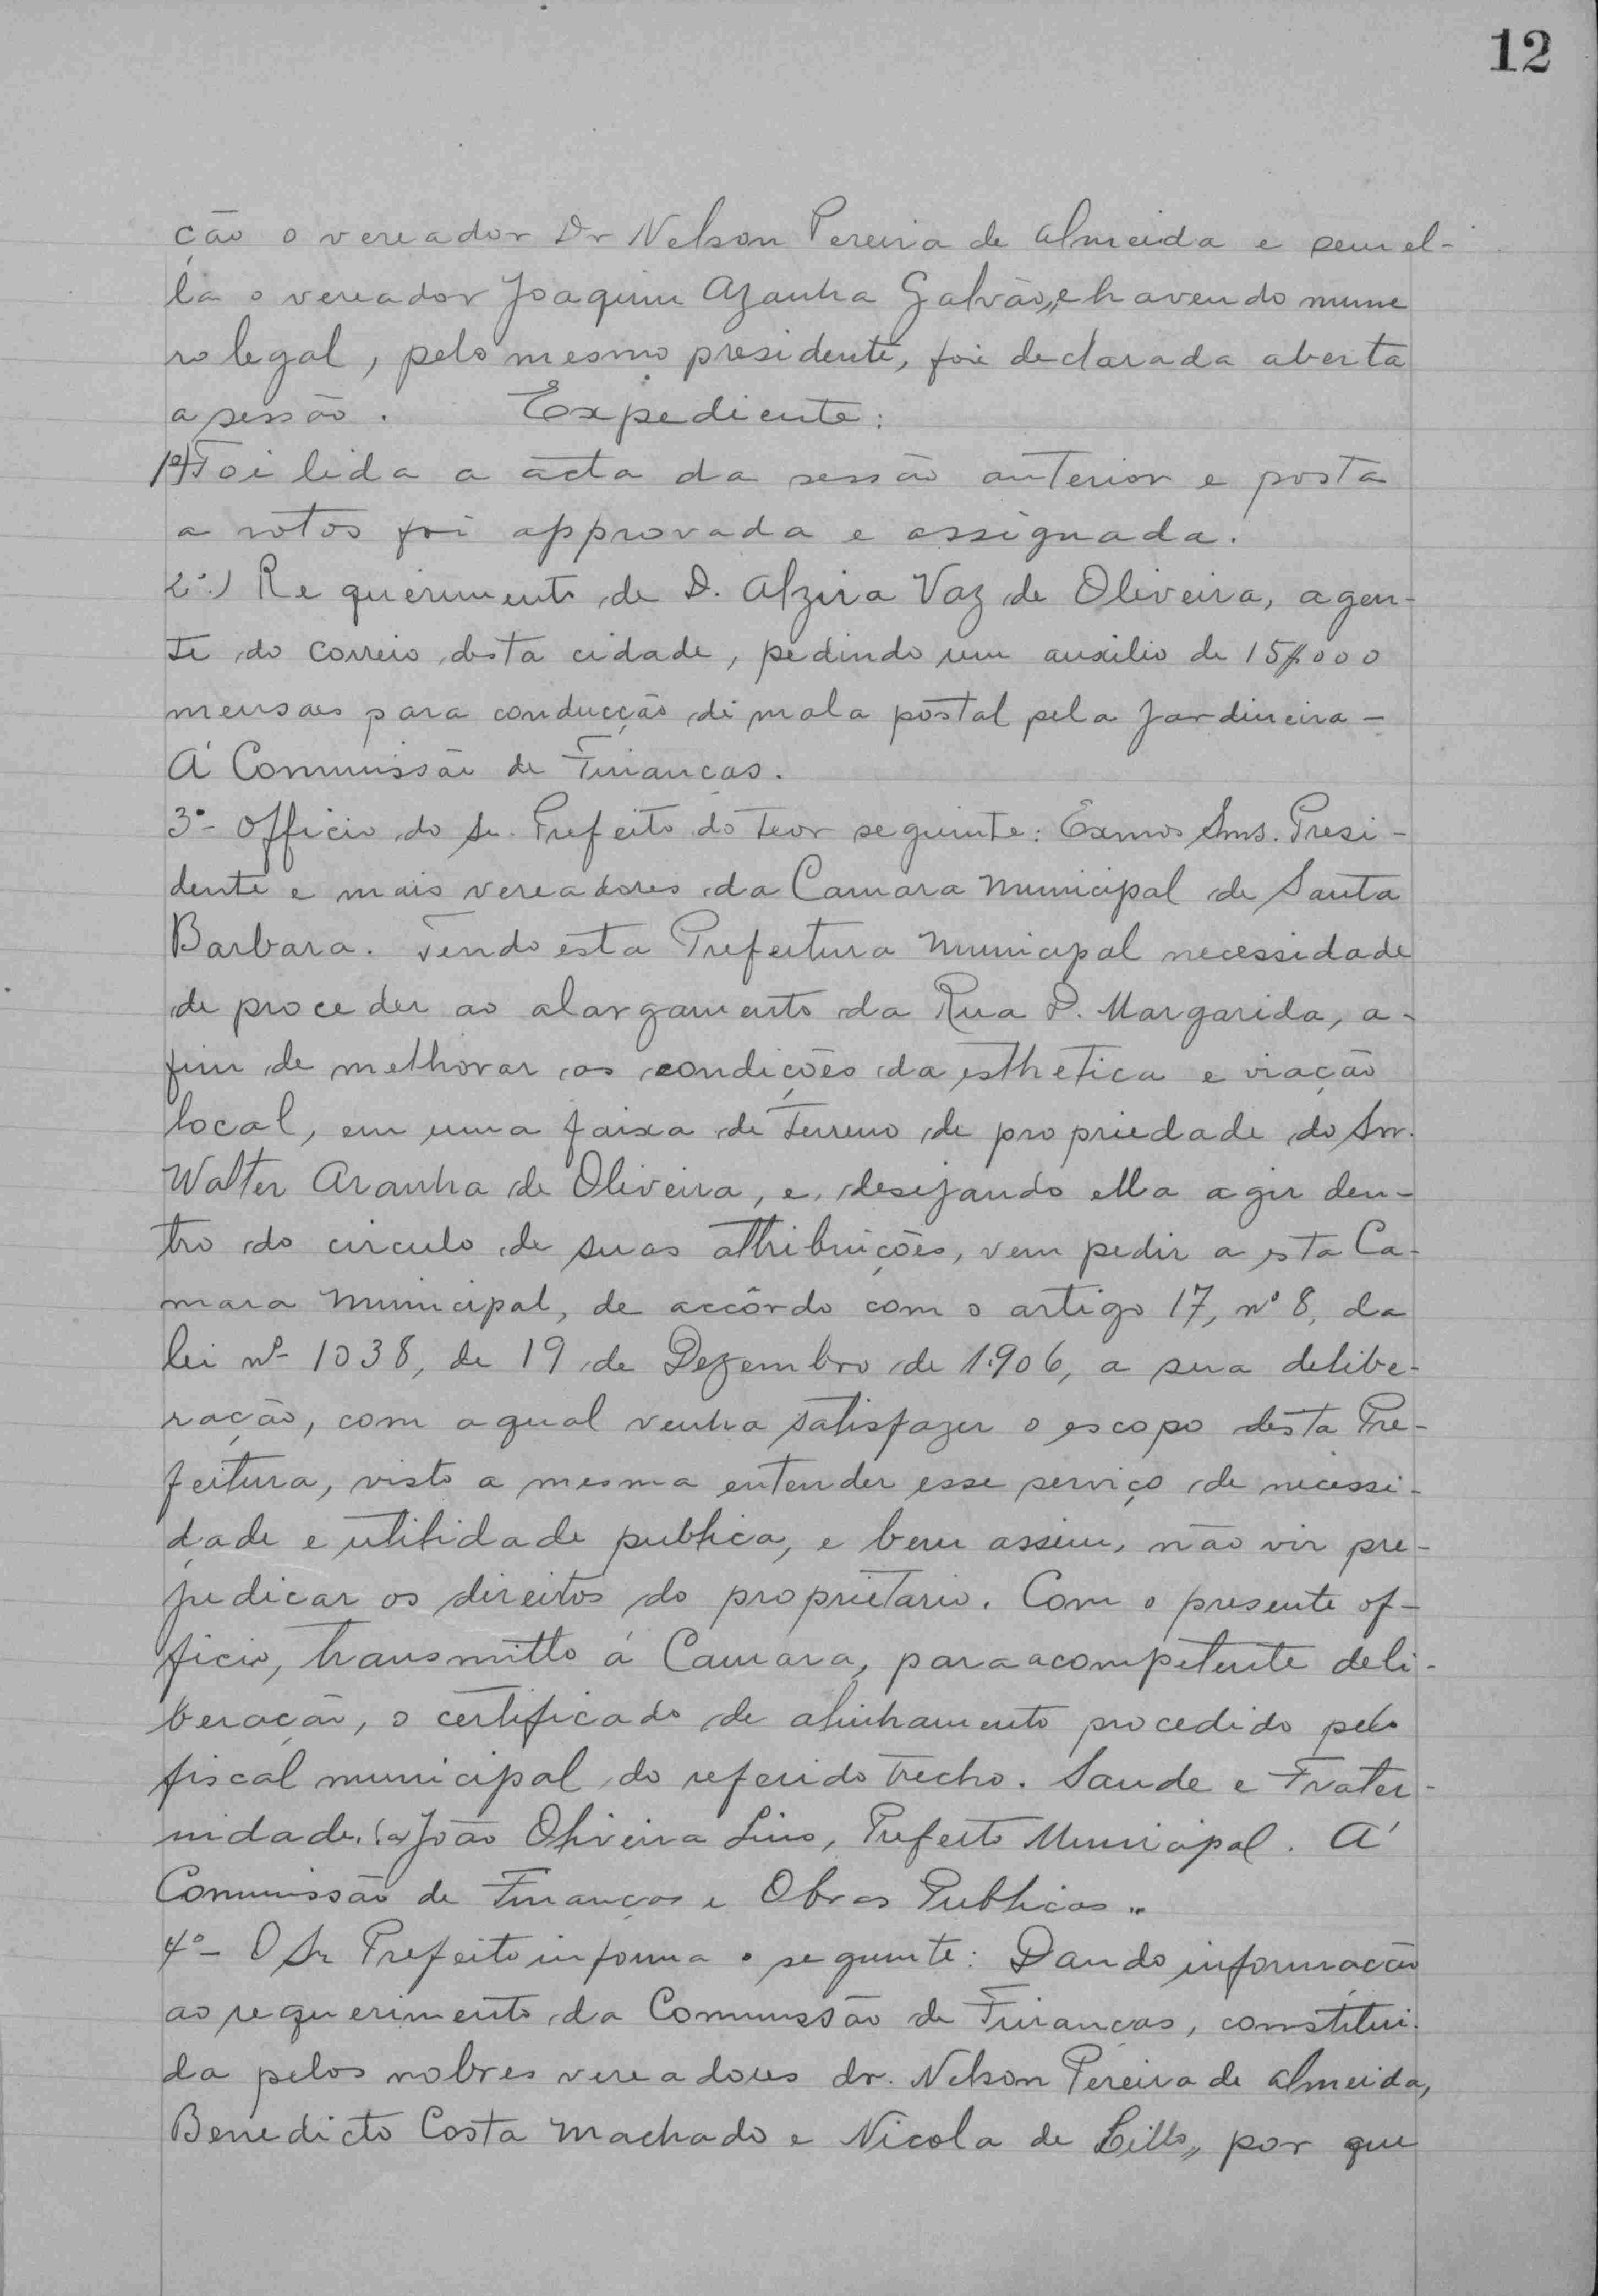 12
ção o vereador Dr Nelson Pereira de Almeida e sem el-
la o vereador Joaquim Azanha Galvão, e havendo nume
ro legal, pelo mesmo presidente, foi declarada aberta
a sessão. Expediente:
1º) Foi lida a acta da sessão anterior e posta
a votos foi approvada e assignada.
2º) Requerimento de D. Alzira Vaz de Oliveira, agen-
te do correio desta cidade, pedindo um auxilio de 15$000
mensaes para conducção de mala postal pela Jardineira -
Á Commissão de Finanças.
3º- Officio do Sr. Prefeito do teor seguinte: Exmos Snrs. Presi-
dente e mais vereadores da Camara Municipal de Santa
Barbara. Tendo esta Prefeitura Municipal necessidade
de proceder ao alargamento da Rua D. Margarida, a-
fim de melhorar as condições da esthetica e viação
local, em uma faixa de terreno de propriedade do Snr.
Walter Aranha de Oliveira, e, desejando ella agir den-
tro do circulo de suas attribuições, vem pedir a esta Ca-
mara Municipal, de accôrdo com o artigo 17, nº 8, da
lei nº 1038, de 19 de Dezembro de 1.906, a sua delibe-
ração, com a qual venha satisfazer o escopo desta Pre-
feitura, visto a mesma entender esse serviço de necessi-
dade e utilidade publica, e bem assim, não vir pre-
judicar os direitos do proprietario. Com o presente of-
ficio, transmitto á Camara, para a competente deli-
beração, o certificado de alinhamento procedido pelo
fiscal municipal do referido trecho. Saude e Frater-
nidade. (a) João Oliveira Lino, Prefeito Municipal. Á
Commissão de Finanças e Obras Publicas.
4º- O Sr Prefeito informa o seguinte: Dando informação
ao requerimento da Commissão de Finanças, constitui-
da pelos nobres vereadores dr. Nelson Pereira de Almeida,
Benedicto Costa Machado e Nicola de Lillo, por que